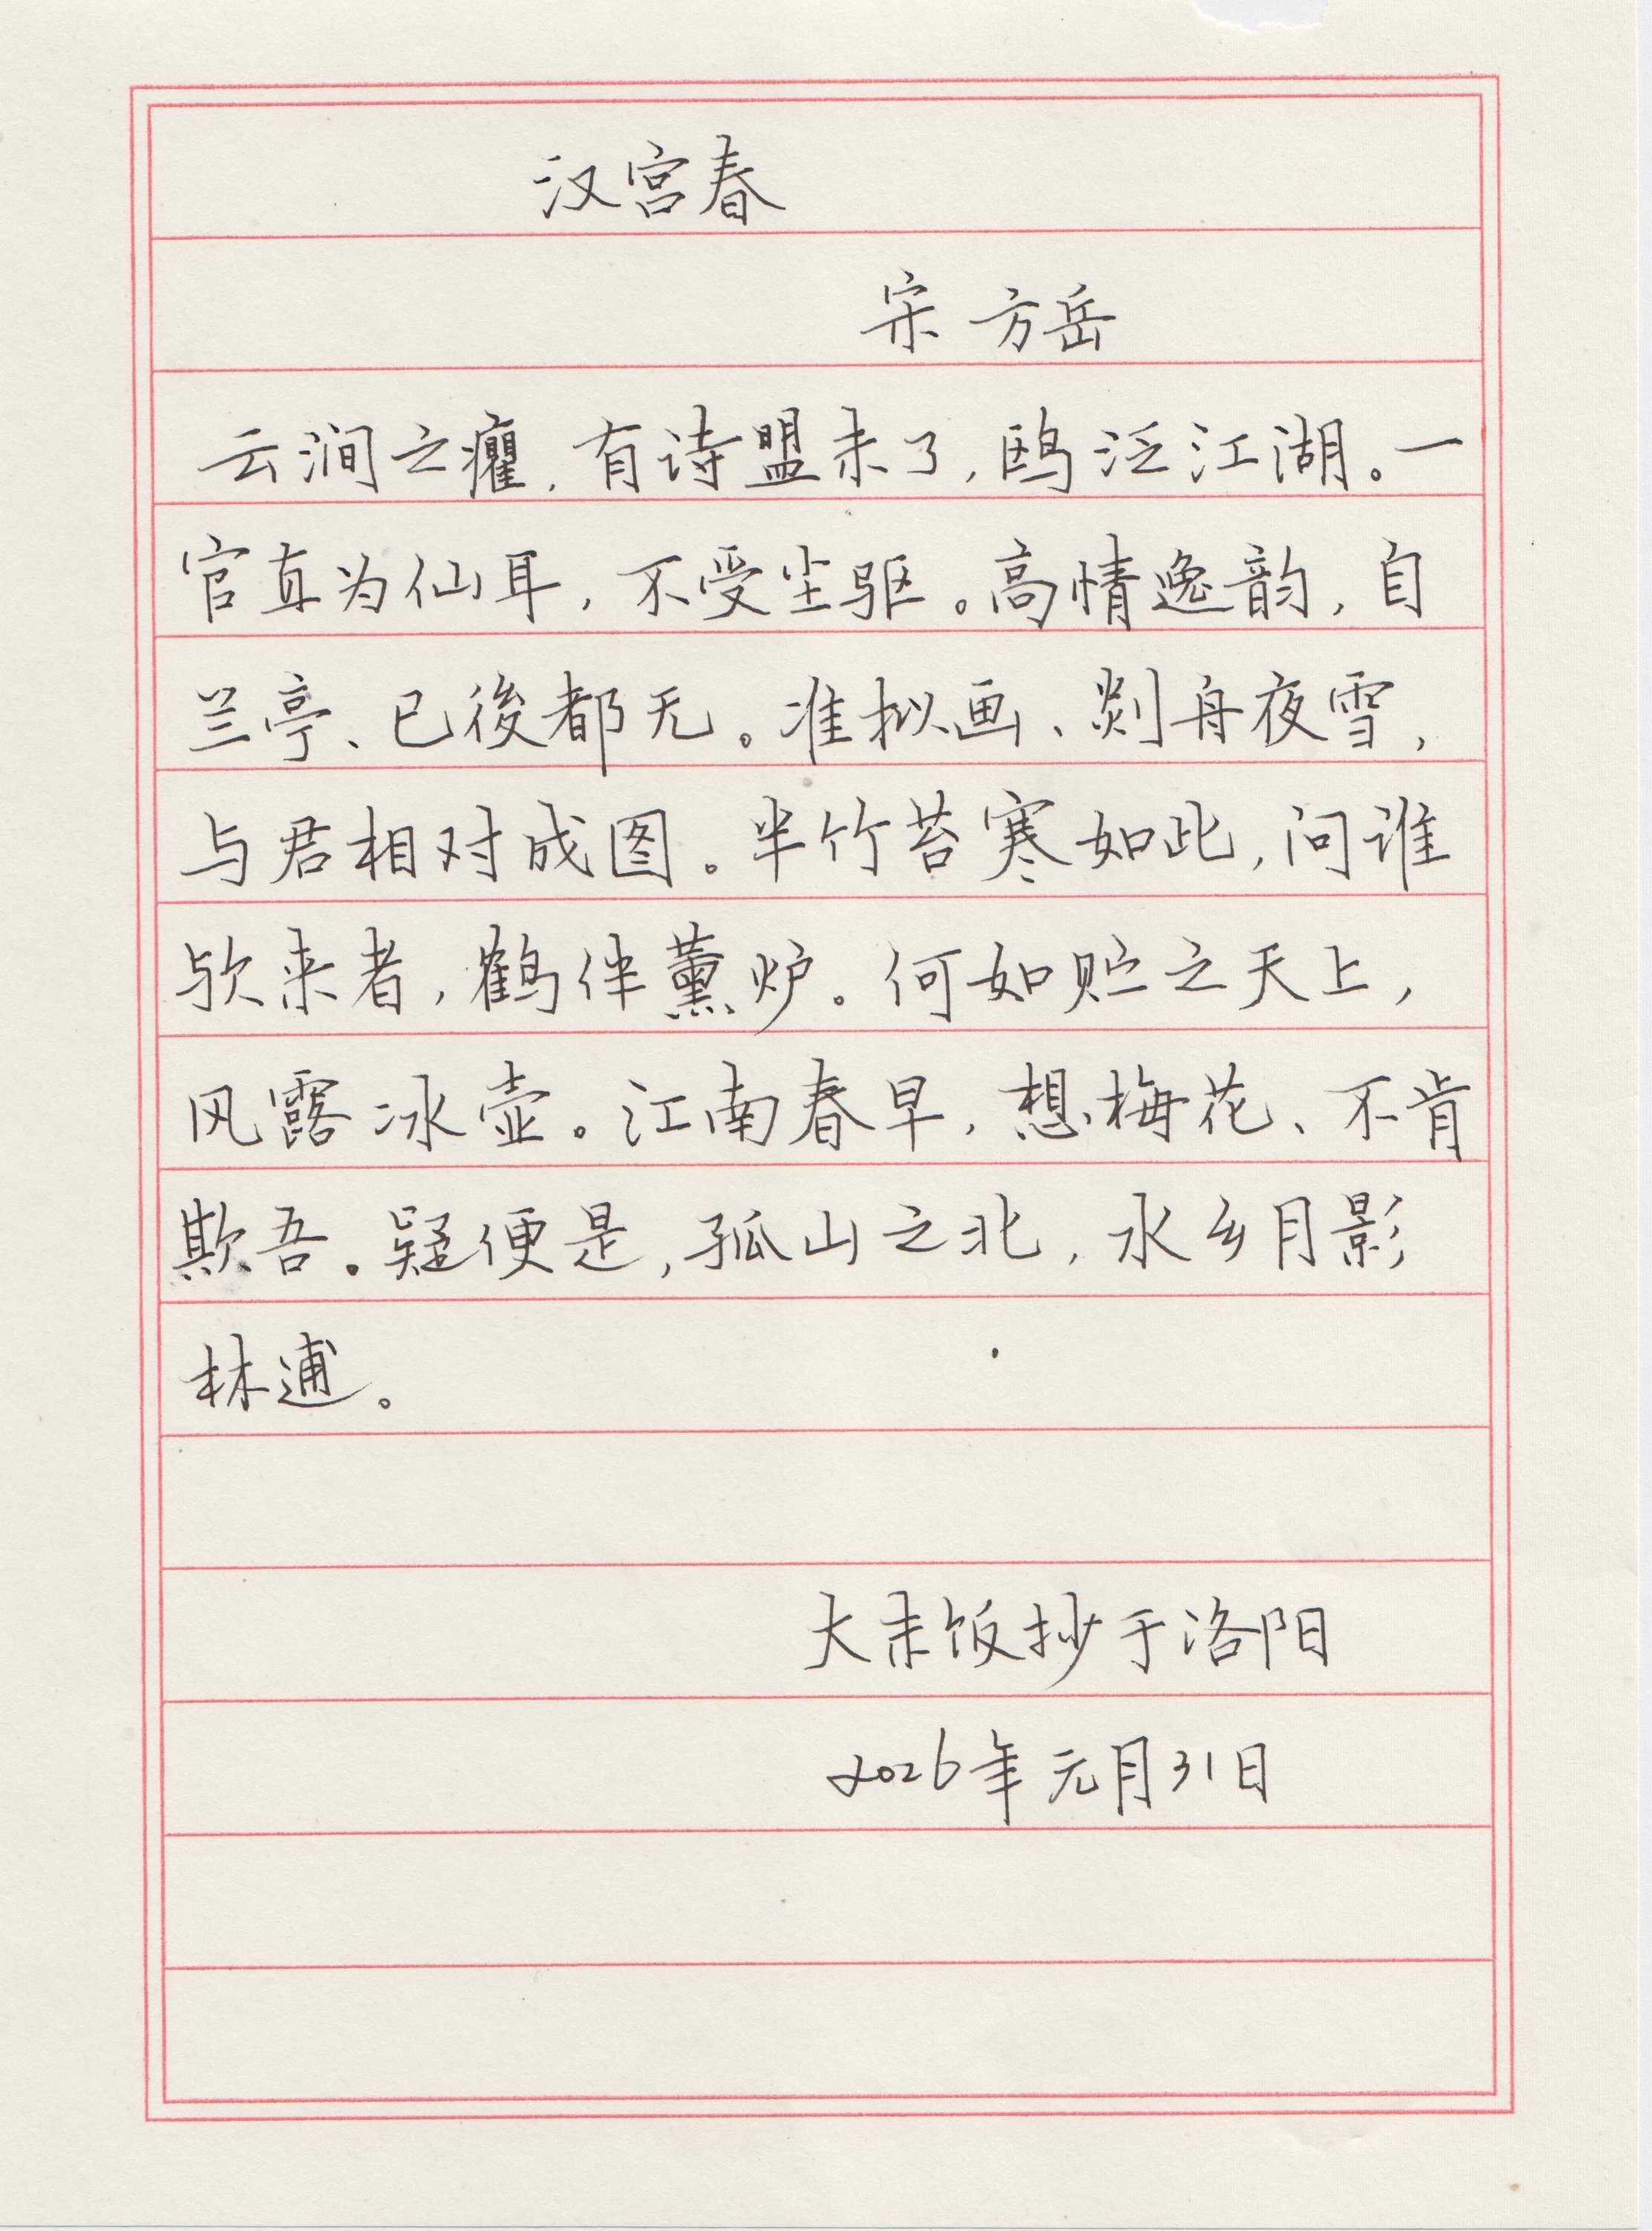 汉宫春
宋 方岳
云涧之癯，有诗盟未了，鸥泛江湖。一
官直为仙耳，不受尘驱。高情逸韵，自
兰亭、已後都无。准拟画、剡舟夜雪，
与君相对成图。半竹苔寒如此，问谁
欤来者，鹤伴薰炉。何如贮之天上，
风露冰壶。江南春早，想梅花、不肯
欺吾。疑便是，孤山之北，水乡月影
林逋。
大未饭抄于洛阳
2026年元月31日